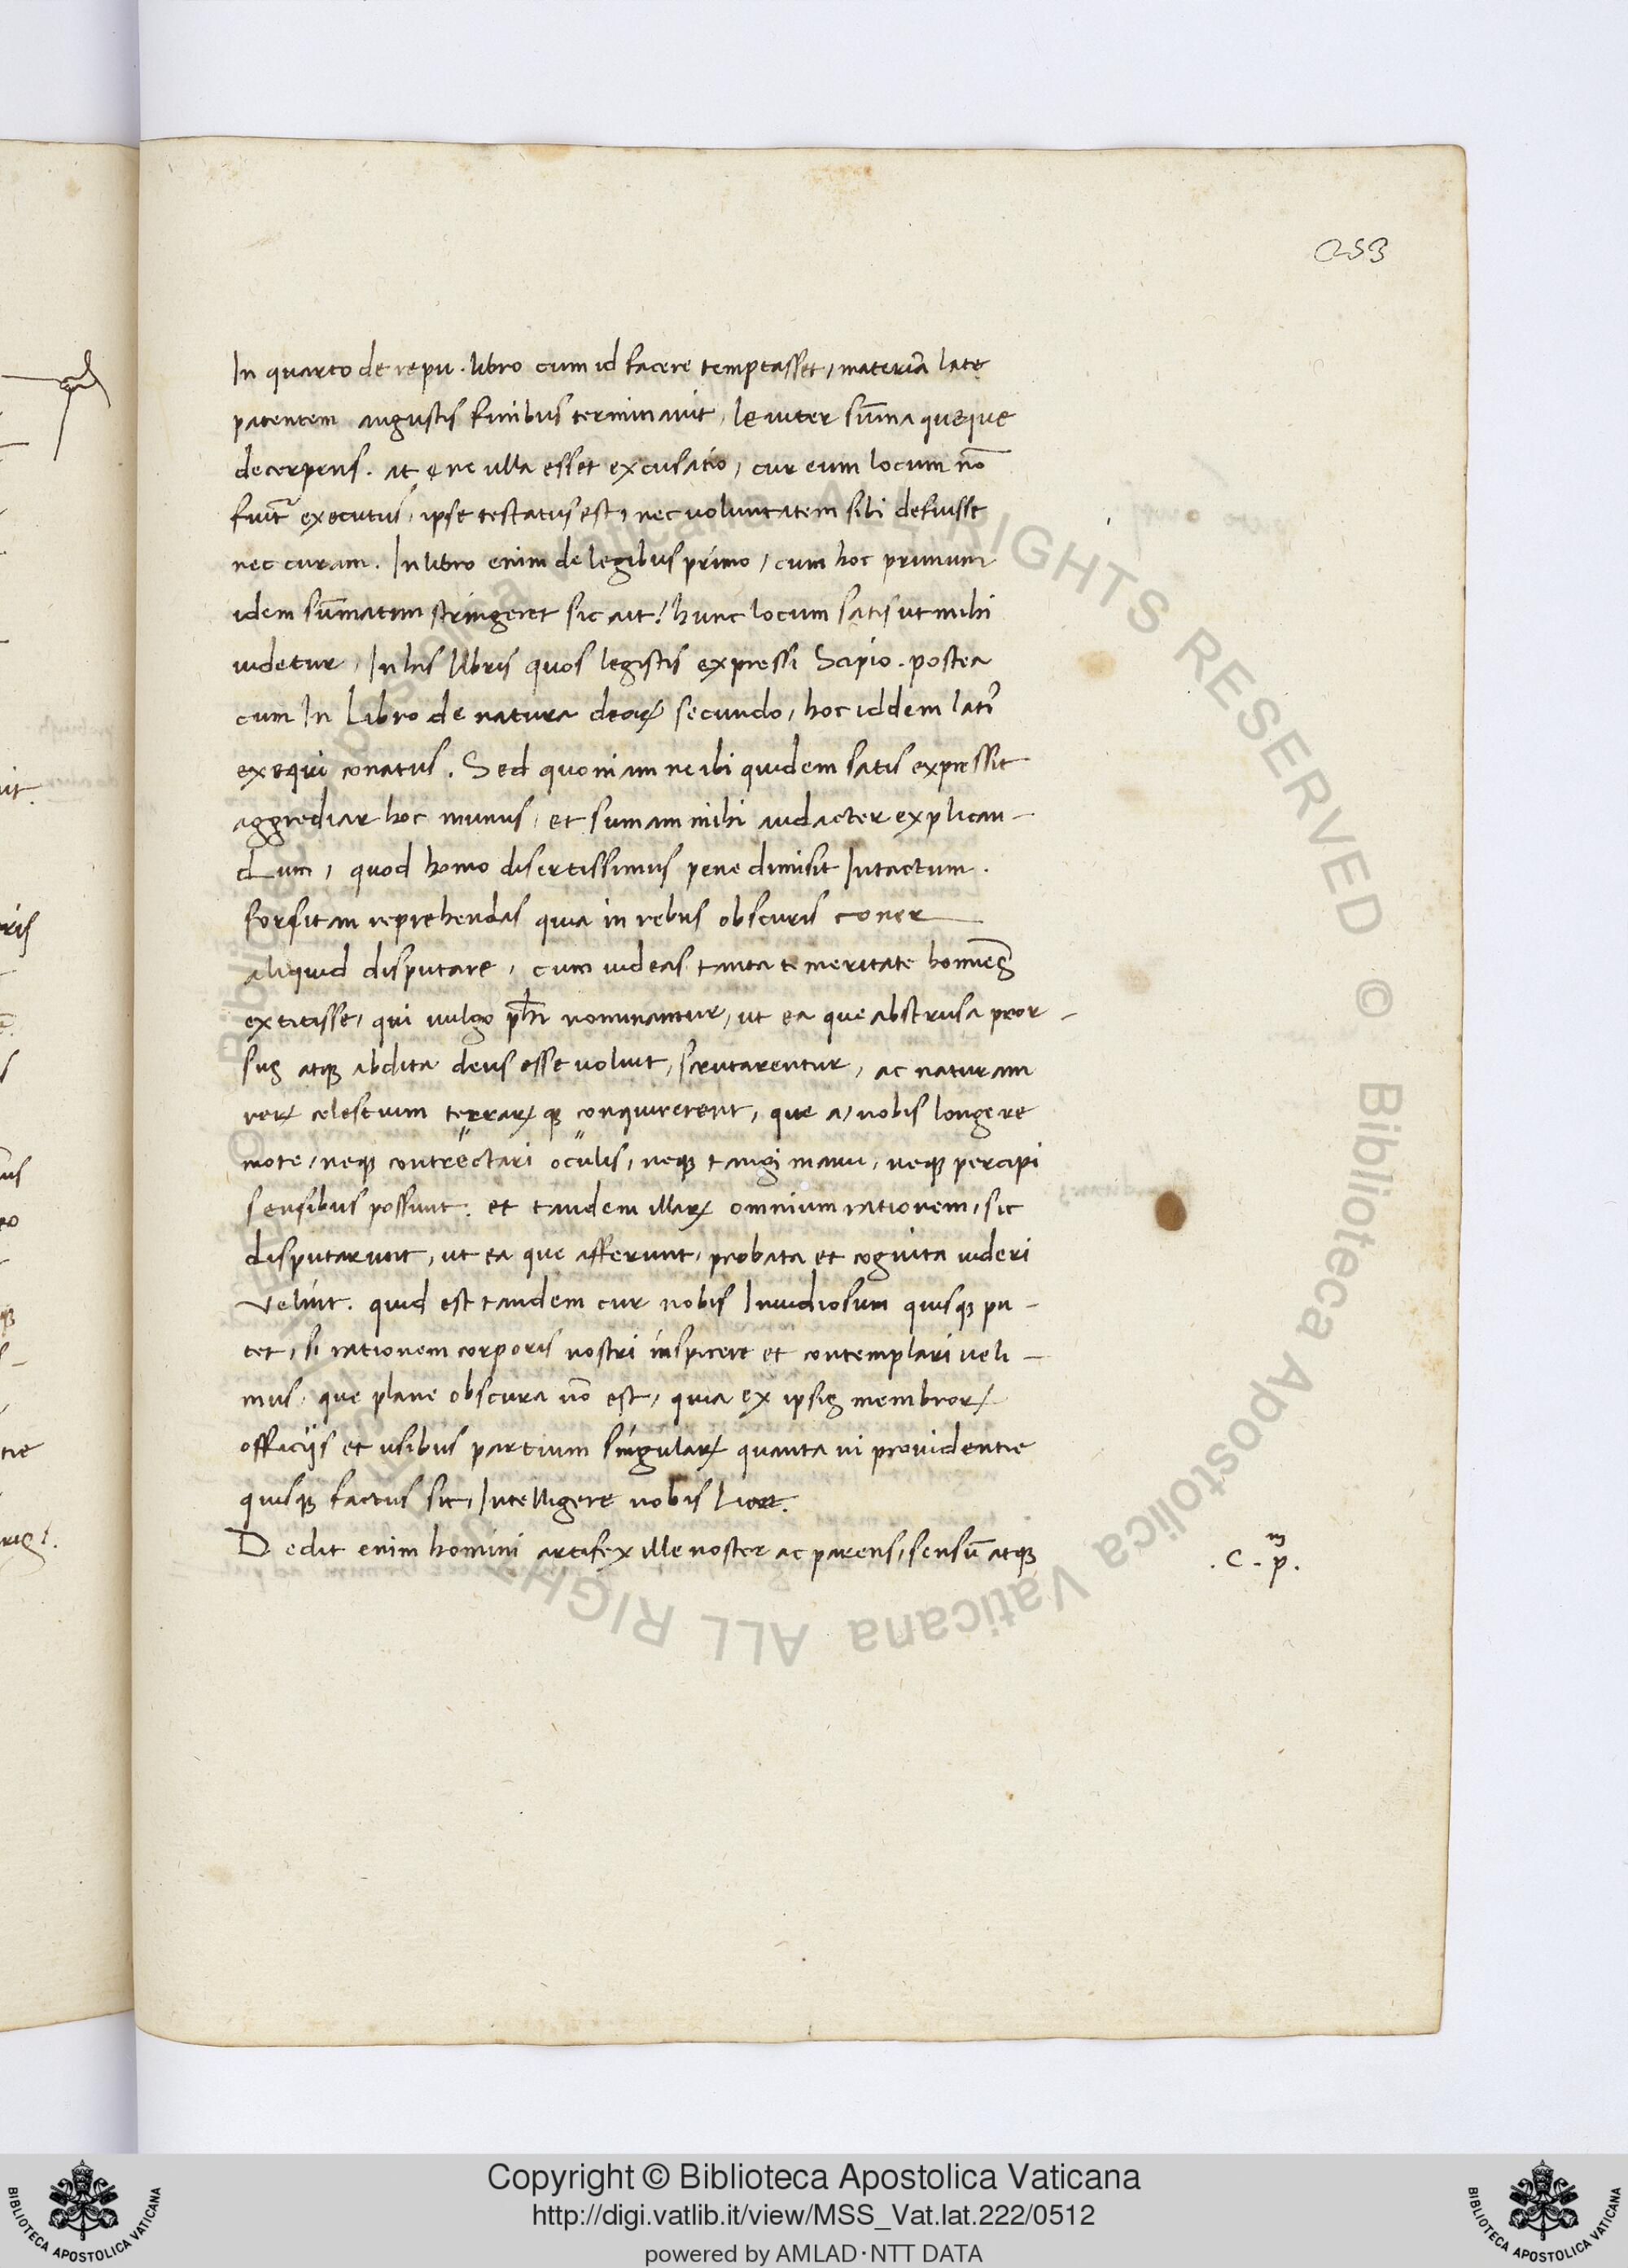 253
In quarto de repu. libro cum id facere temptasset, materiā late
patentem angustis finibus terminavit, leuiter sūma queque
decerpens. at ne ulla esset excusatio, cur eum locum nō
fuit executus, ipse testatus est, nec uoluntatem sibi defuisse
nec curam. In libro enim de legibus primo, cum hoc primum
idem sūmatim stringeret sic ait! hunc locum satis ut mihi
uidetur, In his libris quos legistis expressi Scipio. postea
cum In Libro de natura deoꝝ secundo, hoc iddem lati᾽
exequi conatus. Sed quoniam ne ibi quidem satis expressit
aggrediar hoc munus, et sumam mihi audacter explican-
dum, quod homo disertissimus pene dimisit Intactum.
forsitan reprehendas quia in rebus obscuris coner
aliquid disputare, cum uideas tanta temeritate
extitisse, qui uulgo ph̄i nominantur, ut ea que abstrusa pror-
sus atqꝫ abdita deus esse uoluit, scrutarentur, ac naturam
rerꝝ celestium terrarꝝ qꝫ conquirerent, que a, nobis longe re
mote, neqꝫ contrectari oculis, neqꝫ tangi manu, neqꝫ percipi
sensibus possunt. et tandem illarꝝ omnium rationem, sic
disputarunt, ut ea que afferunt, probata et cognita uideri
velint. quid est tandem cur nobis Inuidiosum quisqꝫ pu-
tet, si rationem corporis nostri inspicere et contemplari ueli-
mus, que plane obscura nō est, quia ex ipsis membrorꝝ
officijs et usibus partium singularꝝ quanta ui prouidentie
quisqꝫ factus sit, Intelligere nobis Licet.
Dedit enim homini artifex ille noster ac parens, sensū atqꝫ
.C. pᵐ.
Copyright © Biblioteca Apostolica Vaticana
http://digi.vatlib.it/view/MSS_Vat.lat.222/0512
powered by AMLAD·NTT DATA